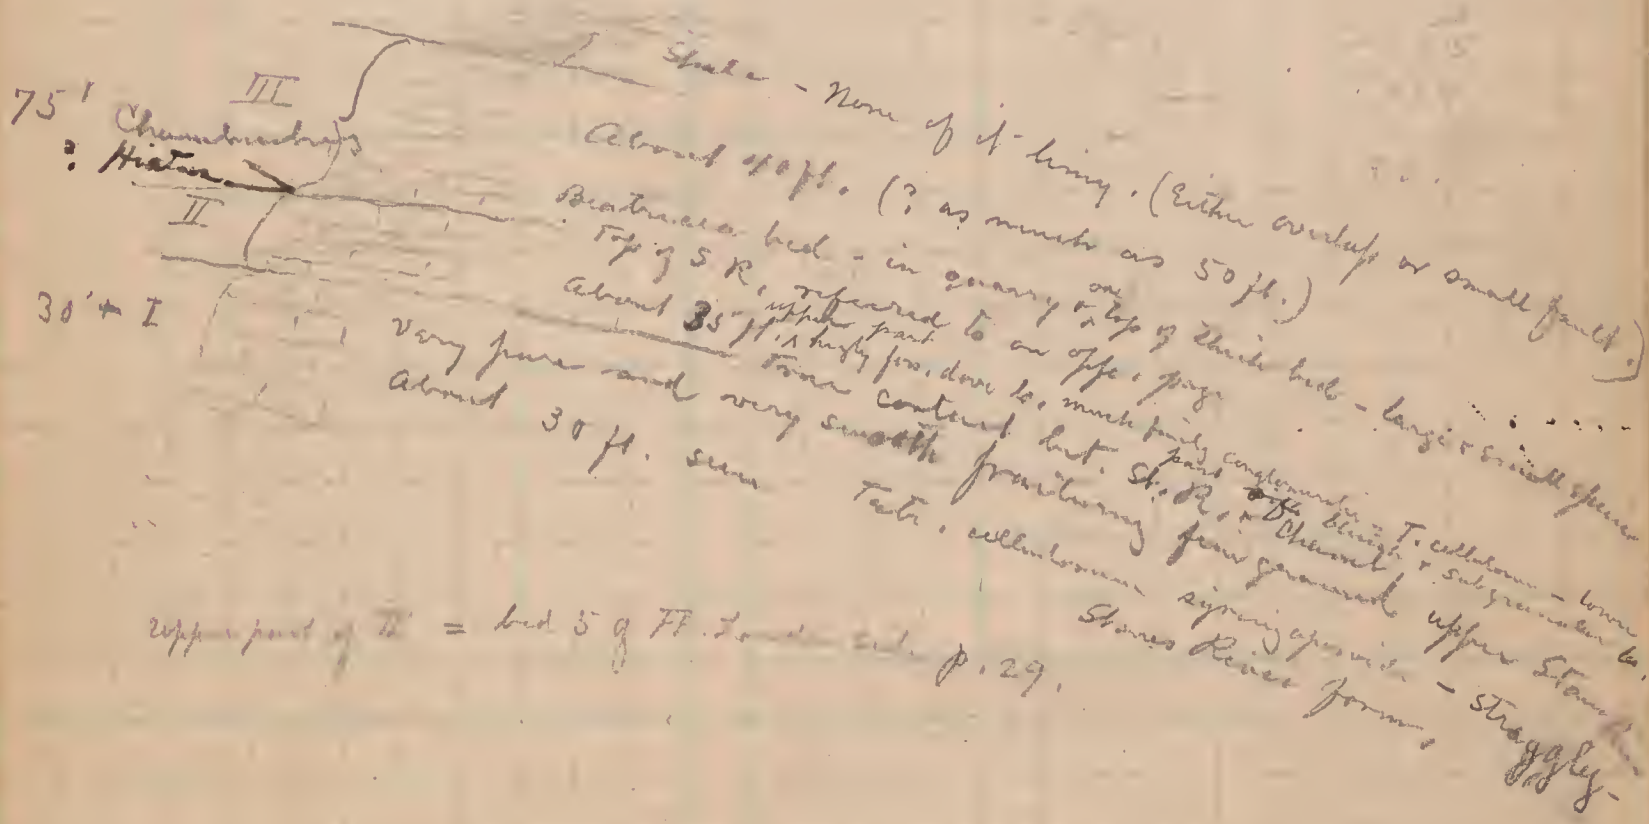 Shale - None of it limy. (Either overlap or small fault.)
III
75' Chambersburg
About 40 ft. (? as much as 50 ft.)
? Hiatus
Beatricea bed - in quarry on top of thick bed - large & small specimens
II
Top of S R, referred to on opp. page
About 35 ft. upper part highly fos. dove ls. much finely conglomeratic - T. cellulosum - lower part bluish & subgranular ls.
True contact bet. St. R. & Chamb.
30' + I
Very pure and very smooth fracturing fine grained upper Stones River
About 30 ft. seen Tetr. cellulosum syringoporoid - straggly -
Stones River form,
upper part of II = bed 5 of Ft. Loudon sect. p. 29.